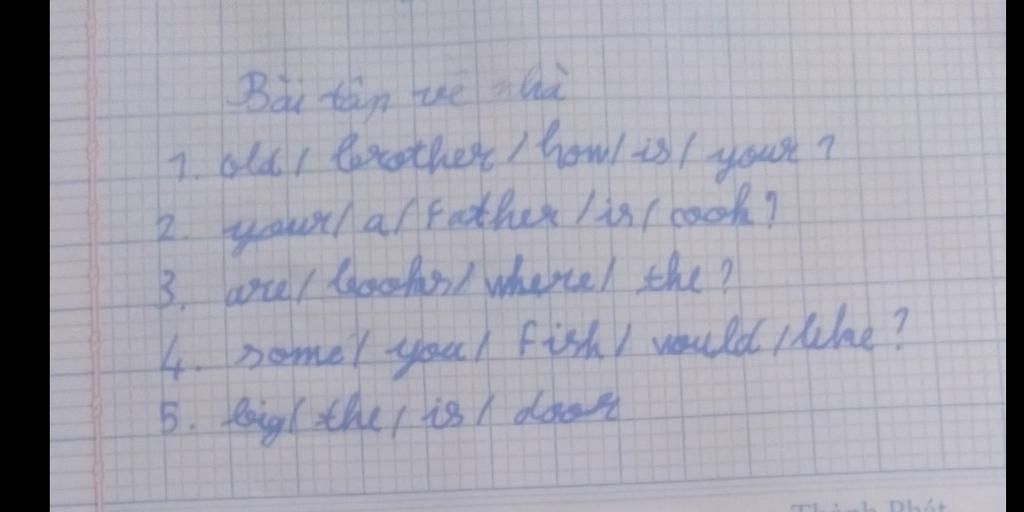 Bài tập về nhà
1. old / brother / how / is / your ?
2. your / a / father / is / cook ?
3. are / books / where / the ?
4. some / you / fish / would / like ?
5. big / the / is / door
Thành Phát